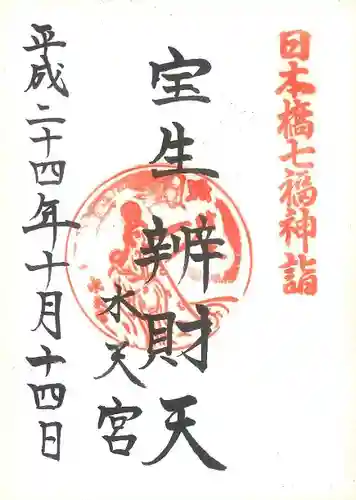 日本橋七福神詣
宝生辨財天
水天宮
平成二十四年十月十四日